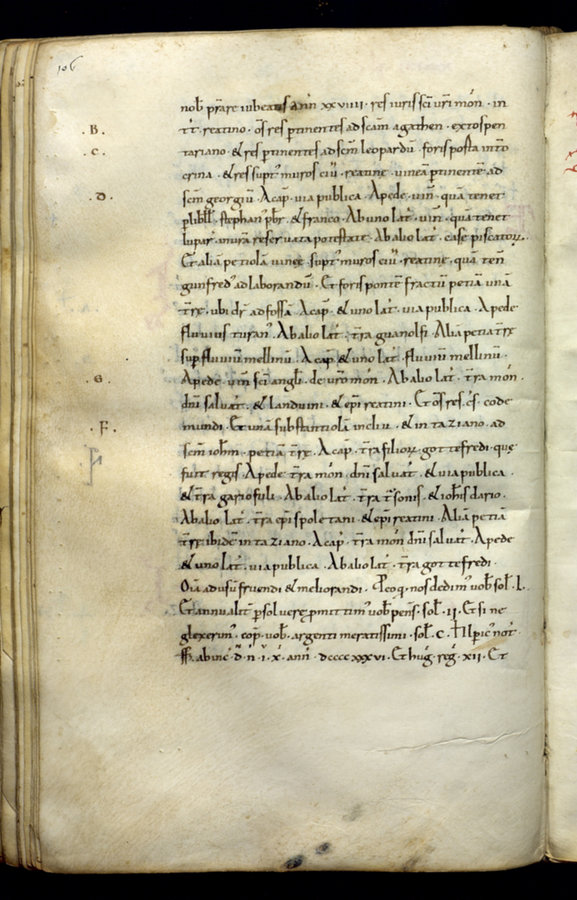 106
nob̄ prārẏ iubeatis ann̄ xxviiii · res iuris sc̄i ur̄i món · in
.B. tr̄t · reatino · ōs res ꝑtinentes ad sc̄am agathen · ex tospen
.C. tariano · & res ꝑtinentes ad sc̄m leopardū · foris posta in tō
crina · & res supt' muros ciū · reatine · uineā ꝑtinentē ad
.D. sc̄m georgiū · A cap̄ · uia publica · A pede · uin̄ · quā tenet
ꝑ libłł · stephan' pb̄r · & franco · Ab uno lat̄ · uin̄ · qua tenet
lupar' · in ur̄a reseruata potestate · Ab alio lat̄ · case piscatoꝝ ·
Et aliā petiolā uineę supt' muros ciū · reatine · quā ten̄
gunfred' ad laborandū · Et foris pontē fractū petiā unā
tr̄ę · ubi dr̄ ad fossā · A cap̄ · & uno lat̄ · uia publica · A pede
fluuius turan' · Ab alio lat̄ · tr̄a guanolfi · Aliā petiā tr̄ę
sup̄ fluuiū mellinū · A cap̄ & uno lat̄ · fluuiū mellinū ·
.E. A pede · uin̄ sc̄i angłi · de ur̄o món · Ab alio lat̄ · tr̄a món ·
dn̄i saluat̄ · & landuini · & ep̄i reatini · Et ōs res · c̄s · code
.F. mundi · Et unā substantiolā in cliuu · & in taziano · ad
sc̄m ioh̄m · petiā · tr̄ę · A cap̄ · tr̄a filioꝝ · gottefredi · quę
fuit regis · A pede · tr̄a món · dn̄i saluat̄ · & uia publica ·
& tr̄a gariofuli · Ab alio lat̄ · tr̄a t'sonis · & ioh̄is dario ·
Ab alio lat̄ · tr̄a ep̄i spoletani · & ep̄i reatini · Aliā petiā
tr̄ę ibidē in taziano · A cap̄ · tr̄a món dn̄i saluat̄ · A pede
& uno lat̄ · uia publica · Ab alio lat̄ · tr̄a gottefredi ·
Oīa ad usū fruendi & meliorandi · Pro q' nos dedim' uob̄ soł · l ·
Et annualit̄ ꝑsoluere ꝓmittim' uob̄ pens̄ · soł · ii · Et si ne
glexerim' · cop̄ · uob̄ · argenti meratissimi · soł · c · † Ilpic' not̄ ·
ss̄ · ab inc̄ · d̄ · n̄ · i · x̄ · ann̄ · dccccxxxvi · Et hug̃ · reg̃ · xii · Et